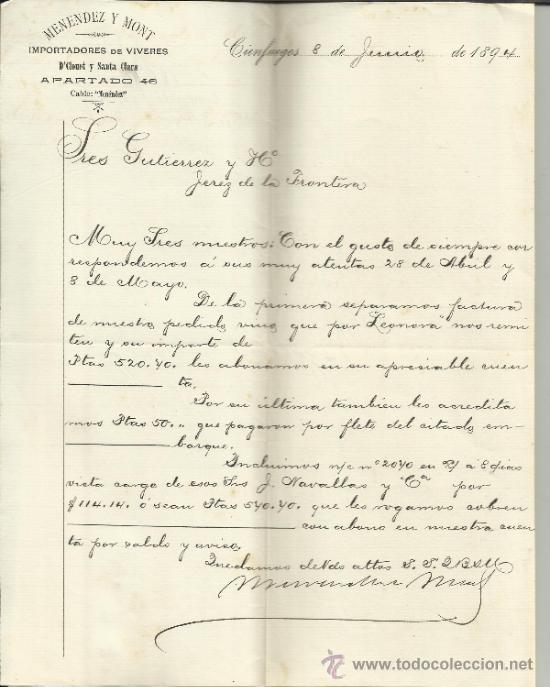 MENENDEZ Y MONT
IMPORTADORES DE VIVERES
D'Clouet y Santa Clara
APARTADO 46
Cable: "Menéndez"
Cienfuegos 8 de Junio de 1894
Sres Gutierrez y Hº
Jerez de la Frontera
Muy Sres nuestros: Con el gusto de siempre cor
respondemos á sus muy atentas 28 de Abril y
8 de Mayo.
De la primera separamos factura
de nuestro pedido vino que por "Leonora" nos remi
ten y su importe de
Ptas 520.40. les abonamos en su apresiable cuen
ta.
Por su última tambien les acredita
mos Ptas 50.,, que pagaron por flete del citado em-
barque.
Incluimos n/c nº 2040 en P/ á 8 dias
vista cargo de esos Sres J. Navallas y Cª por
$114.14. ó sean Ptas 540.40. que les rogamos cobren
con abono en nuestra cuen
ta por saldo y aviso.
Quedamos de Vds attos S. S. Q B S M
Menendez y Mont
todocoleccion
www.todocoleccion.net